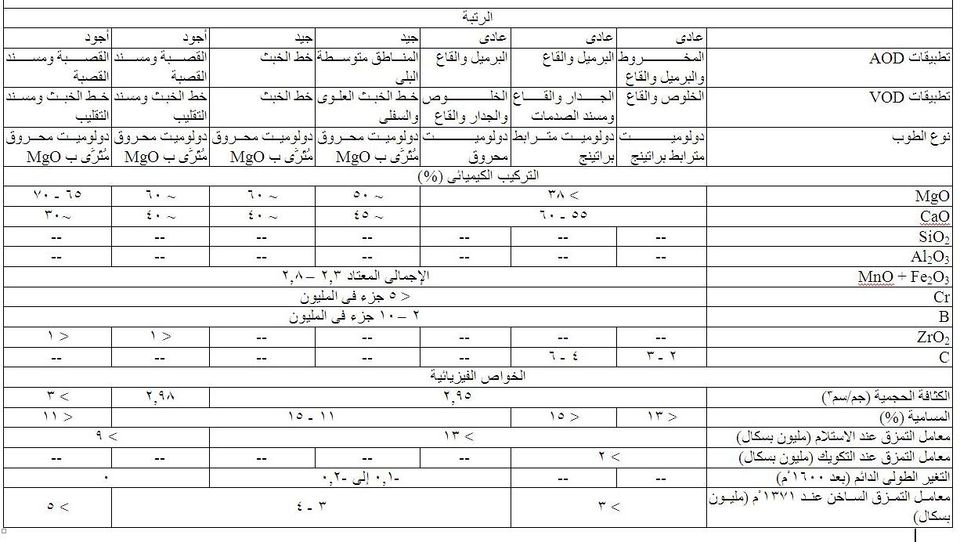 الرتبة
عادى عادى عادى جيد جيد أجود أجود
تطبيقات AOD المخروط والبرميل والقاع البرميل والقاع البرميل والقاع المناطق متوسطة البلى خط الخبث القصبة ومسند القصبة القصبة ومسند القصبة
تطبيقات VOD الخلوص والقاع الجدار والقاع ومسند الصدمات الخلوص والجدار والقاع خط الخبث العلوى والسفلى خط الخبث خط الخبث ومسند التقليب خط الخبث ومسند التقليب
نوع الطوب دولوميت مترابط براتينج دولوميت مترابط براتينج دولوميت محروق دولوميت محروق مُثْرًى ب MgO دولوميت محروق مُثْرًى ب MgO دولوميت محروق مُثْرًى ب MgO دولوميت محروق مُثْرًى ب MgO
التركيب الكيميائى (%)
MgO > ٣٨ ~ ٥٠ ~ ٦٠ ~ ٦٠ ٦٥ - ٧٠
CaO ٥٥ - ٦٠ ~ ٤٥ ~ ٤٠ ~ ٤٠ ~٣٠
SiO₂ -- -- -- -- -- -- --
Al₂O₃ -- -- -- -- -- -- --
MnO + Fe₂O₃ الإجمالى المعتاد ٢,٣ – ٢,٨
Cr < ٥ جزء فى المليون
B ٢ – ١٠ جزء فى المليون
ZrO₂ -- -- -- -- -- < ١ < ١
C ٢ - ٣ ٤ - ٦ -- -- -- -- --
الخواص الفيزيائية
الكثافة الحجمية (جم/سم٣) ٢,٩٥ ٢,٩٨ > ٣
المسامية (%) < ١٣ < ١٥ ١١ - ١٥ < ١١
معامل التمزق عند الاستلام (مليون بسكال) > ١٣ > ٩
معامل التمزق عند التكويك (مليون بسكال) > ٢ -- -- -- -- --
التغير الطولى الدائم (بعد ١٦٠٠°م) -- -- -٠,١ إلى -٠,٢ ٠
معامل التمزق الساخن عند ١٣٧١°م (مليون بسكال) > ٣ ٣ - ٤ > ٥